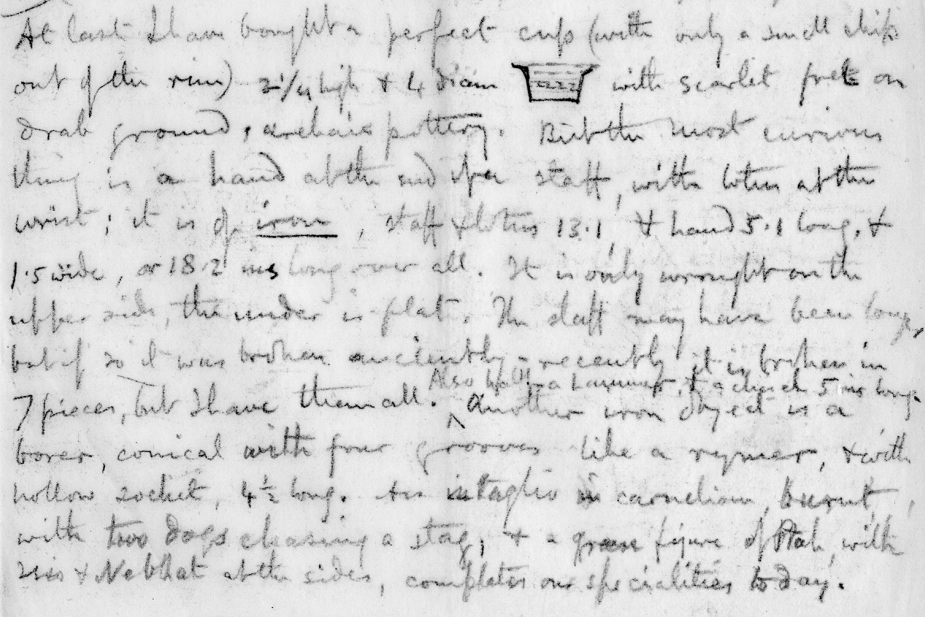 At last I have bought a perfect cup (with only a small chip
out of the rim) 2 1/4 high & 4 diam with scarlet fret on
drab ground, archaic pottery. But the most curious
thing is a hand at the end of a staff, with lotus at the
wrist; it is of iron, staff & lotus 13.1, & hand 5.1 long, &
1.5 wide, or 18.2 ins long over all. It is only wrought on the
upper side, the under is flat. The staff may have been longer,
but if so it was broken anciently – recently it is broken in
Also half a hammer, & a chisel 5 ins long.
7 pieces, but I have them all. ^ Another iron object is a
borer, conical with four grooves like a rymer, & with
hollow socket, 4 1/2 long. An intaglio in carnelian, burnt,
with two dogs chasing a stag, & a green figure of Ptah, with
Isis & Nebhat at the sides, completes our specialities to day.